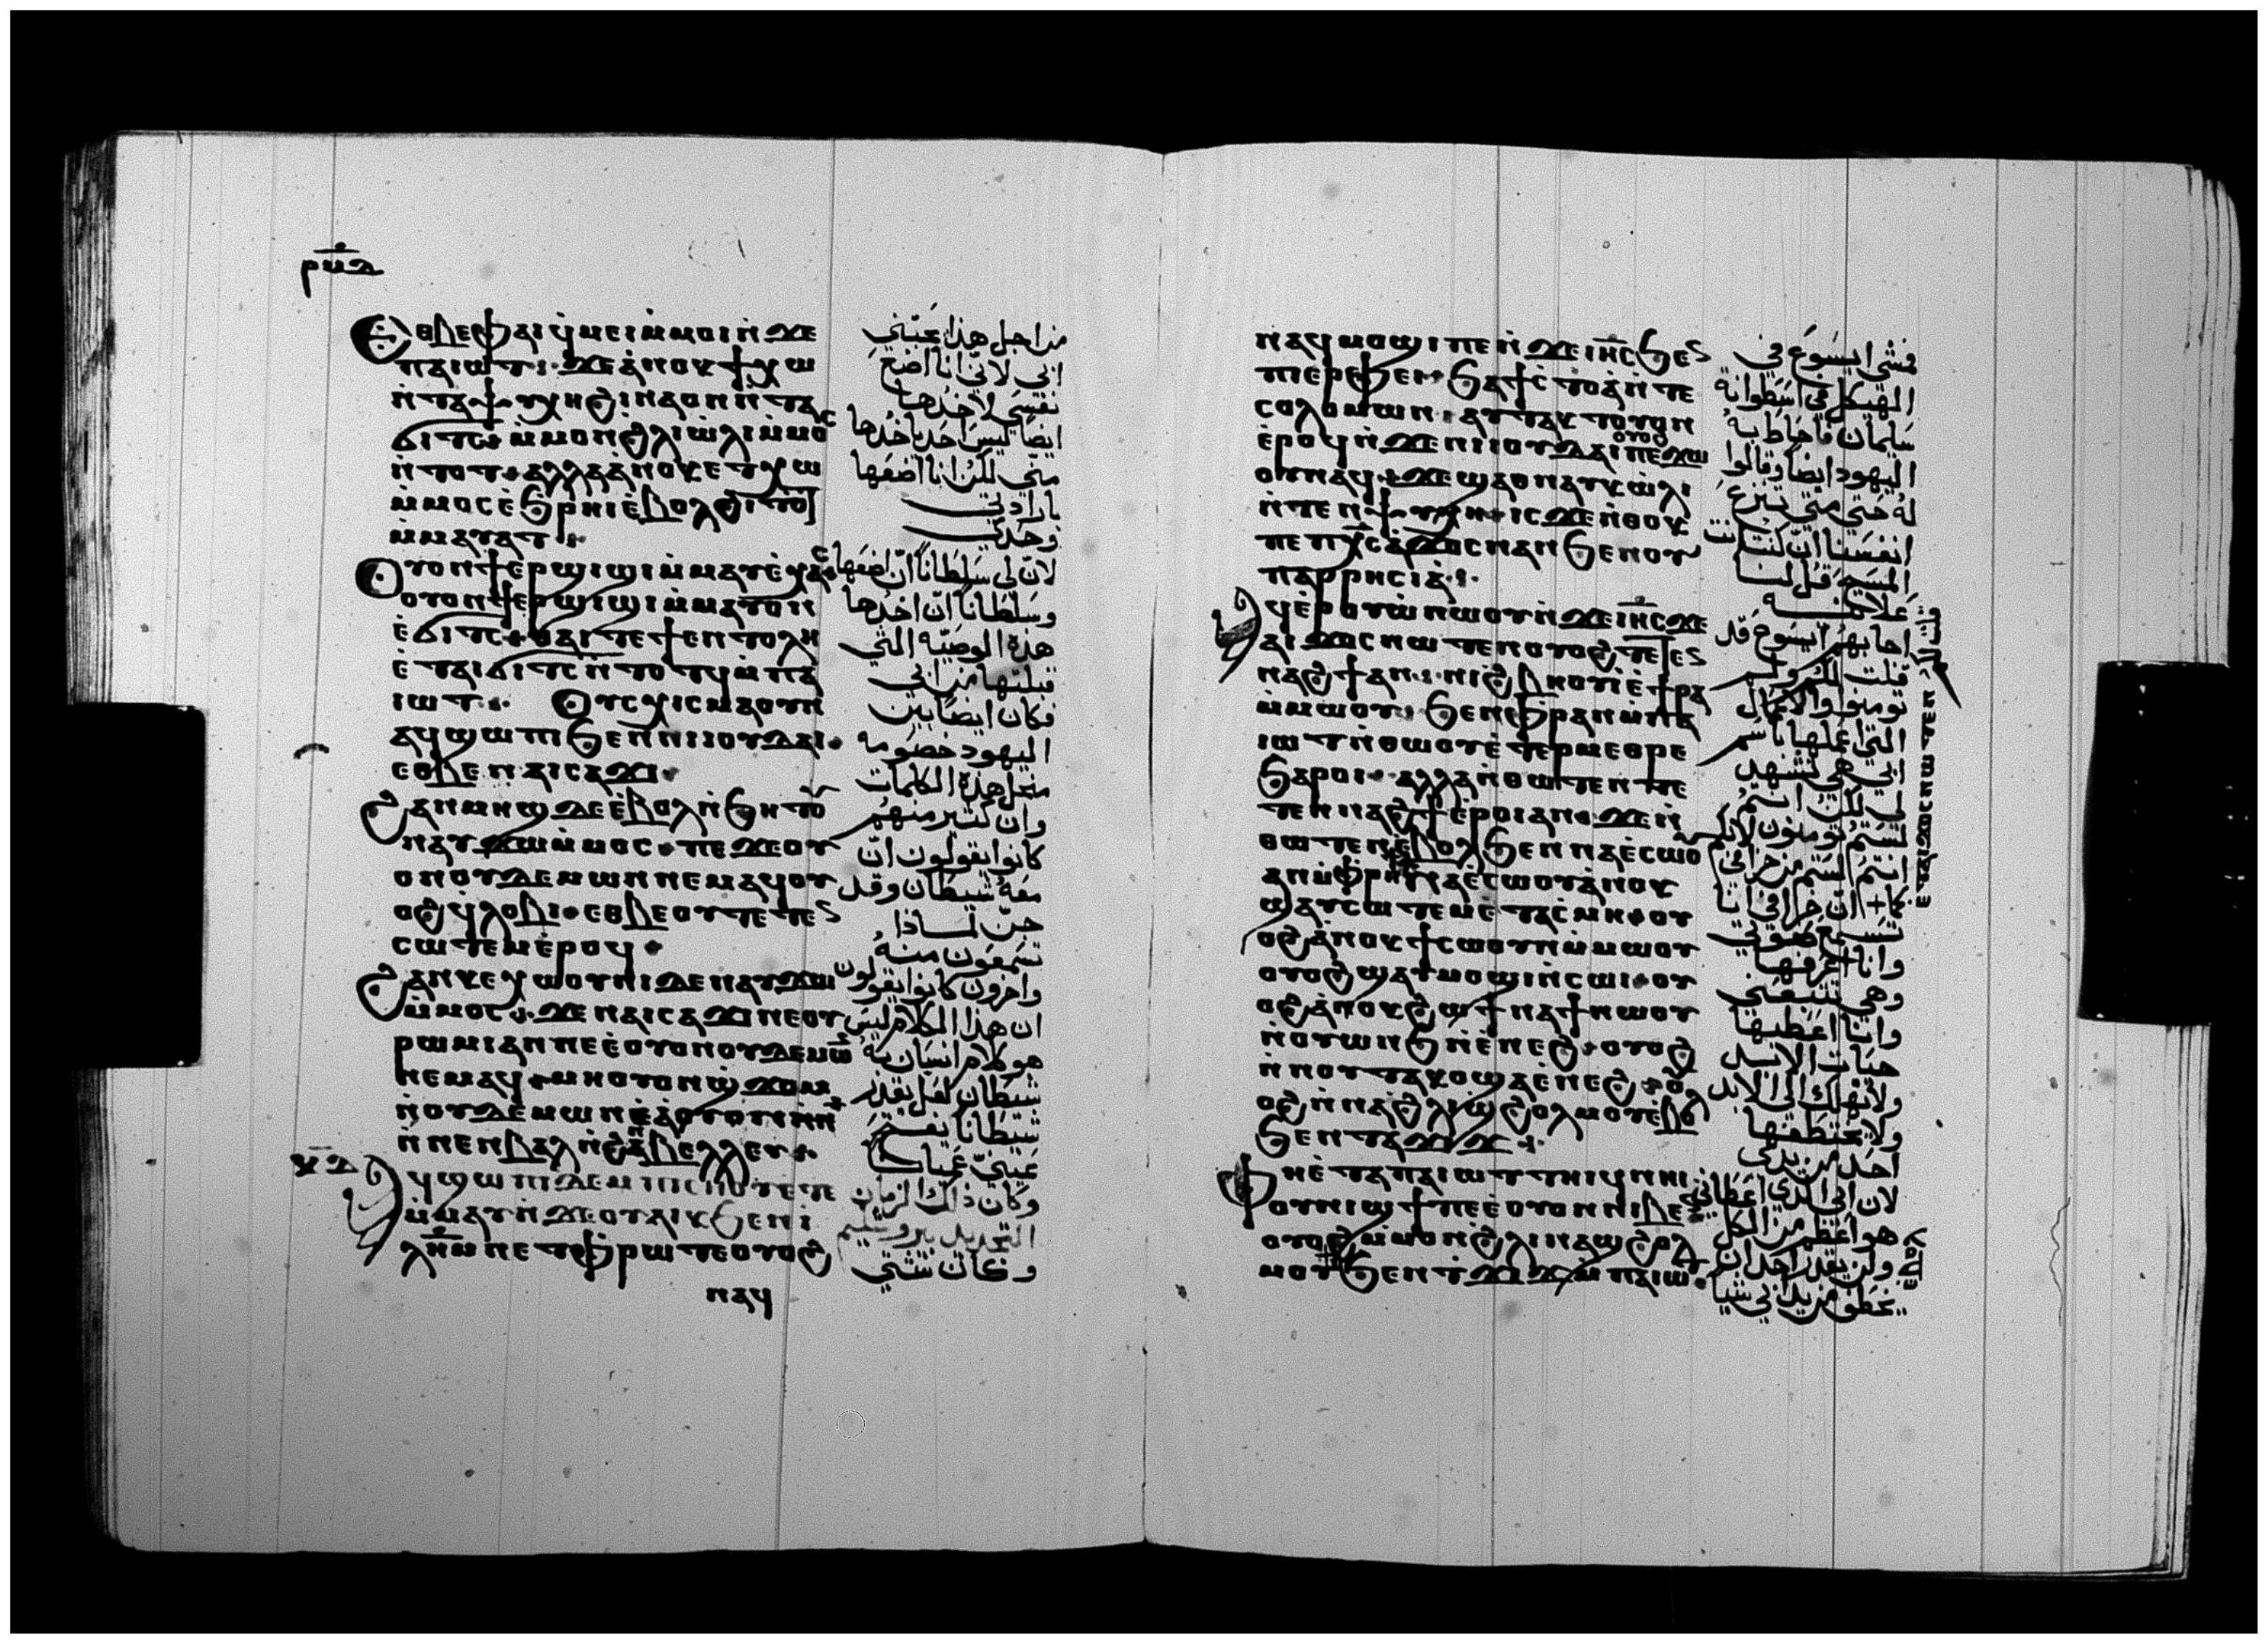 ⲣⲙⲇ
ⲉⲑⲃⲉⲫⲁⲓ ϥⲙⲉⲓ ⲙⲙⲟⲓ ⲛϫⲉ
ⲡⲁⲓⲱⲧ· ϫⲉ ⲁⲛⲟⲕ ϯⲭⲱ
ⲛⲧⲁⲯⲩⲭⲏ ϩⲓⲛⲁ ⲟⲛ ⲛⲧⲁ
ϭⲓⲧⲥ· ⲙⲙⲟⲛ ϩⲗⲓ ⲱⲗⲓ ⲙⲙⲟⲥ
ⲛⲧⲟⲧ· ⲁⲗⲗⲁ ⲁⲛⲟⲕ ⲉⲧⲭⲱ
ⲙⲙⲟⲥ ⲉϧⲣⲏⲓ ⲉⲃⲟⲗϩⲓⲧⲟⲧ
ⲙⲙⲁⲩⲁⲧ·
ⲟⲩⲟⲛϯ ⲉⲣϣⲓϣⲓ ⲙⲙⲁⲩ ⲉⲭⲁⲥ·
ⲟⲩⲟⲛϯ ⲉⲣϣⲓϣⲓ ⲙⲙⲁⲩ ⲟⲛ
ⲉϭⲓⲧⲥ· ⲑⲁⲓ ⲧⲉ ϯⲉⲛⲧⲟⲗⲏ
ⲉⲧⲁⲓϭⲓⲧⲥ ⲛⲧⲟⲧϥ ⲙⲡⲁ
ⲓⲱⲧ· ⲟⲩⲥⲭⲓⲥⲙⲁ ⲟⲩⲛ
ⲁϥϣⲱⲡⲓ ϧⲉⲛ ⲛⲓⲓⲟⲩⲇⲁⲓ·
ⲉⲑⲃⲉ ⲛⲁⲓⲥⲁϫⲓ·
ϩⲁⲛⲙⲏϣ ⲇⲉ ⲉⲃⲟⲗ ⲛϧⲏⲧⲟⲩ
ⲛⲁⲩϫⲱ ⲙⲙⲟⲥ· ⲡⲉ ϫⲉ ⲟⲩ
ⲟⲛ ⲟⲩⲇⲉⲙⲱⲛ ⲛⲉⲙⲁϥ ⲟⲩ
ⲟϩ ϥⲗⲟⲃⲓ· ⲉⲑⲃⲉⲟⲩ ⲧⲉⲧⲉⲛ
ⲥⲱⲧⲉⲙ ⲉⲣⲟϥ·
ϩⲁⲛⲕⲉⲭⲱⲟⲩⲛⲓ ⲇⲉ ⲛⲁⲩϫⲱ
ⲙⲙⲟⲥ· ϫⲉ ⲛⲁⲓⲥⲁϫⲓ ⲛⲉ ⲟⲩ
ⲣⲱⲙⲓ ⲁⲛ ⲡⲉ ⲉⲟⲩⲟⲛ ⲟⲩⲇⲉⲙⲱⲛ
ⲛⲉⲙⲁϥ· ⲙⲏ ⲟⲩⲟⲛ ϣϫⲟⲙ
ⲛⲟⲩⲇⲉⲙⲱⲛ ⲉⲁⲟⲩⲱⲛ
ⲛⲛⲉⲛⲃⲁⲗ ⲛϩⲁⲛⲃⲉⲗⲗⲉⲩ·
ⲕⲇ ⲁϥϣⲱⲡⲓ ⲇⲉ ⲙⲡⲓⲥⲏⲟⲩ ⲉⲧⲉ
ⲙⲙⲁⲩ ⲛϫⲉ ⲟⲩⲁⲓⲕ ϧⲉⲛ ⲓ
ⲗⲏⲙ ⲛⲉ ⲧⲫⲣⲱ ⲧⲉ ⲟⲩⲟϩ
ⲛⲁϥ
من اجل هذا يحبّني
ابي لانّي انا اضع
نفسي لاخذها
ايضا ليس احد ياخذها
منّي لكن انا اضعها
بارادتي
وحدي
لانّ لي سلطاناً ان اضعها
وسلطاناً ان اخذها
هذه الوصيّه التي
قبلتها من ابي
فكان ايضا بين
اليهود خصومه
من اجل هذه الكلمات
وان كثير منهم
كانوا يقولون انّ
معه شيطان وقد
جنّ لماذا
تسمعون منه
واخرون كانوا يقولون
ان هذا الكلام ليس
هو كلام انسان به
شيطان لعل يقدر
شيطانا يفتح
عينيّ عميان
وكان ذلك الزمان
التجديد بيروشليم
وكان شتي
ⲛⲁϥⲙⲟϣⲓ ⲡⲉ ⲛϫⲉ ⲓⲏⲥ ϧⲉⲛ
ⲡⲓⲉⲣⲫⲉⲓ· ϧⲁ ϯⲥⲧⲟⲁ ⲛⲧⲉ
ⲥⲟⲗⲟⲙⲱⲛ· ⲁⲩⲧⲁⲕⲧⲟ ⲟⲩⲛ
ⲉⲣⲟϥ ⲛϫⲉ ⲛⲓⲓⲟⲩⲇⲁⲓ ⲟⲩⲟϩ ⲡⲉϫⲱ
ⲟⲩ ⲛⲁϥ· ϫⲉ ϣⲁ ⲑⲛⲁⲩ ⲕⲱⲗⲓ
ⲛⲧⲉⲛⲯⲩⲭⲏ· ⲓⲥϫⲉ ⲛⲑⲟⲕ
ⲡⲉ ⲡⲭⲥ ⲁϫⲟⲥ ⲛⲁⲛ ϧⲉⲛ ⲟⲩ
ⲡⲁⲣⲣⲏⲥⲓⲁ·
ⲁϥⲉⲣⲟⲩⲱ ⲛⲱⲟⲩ ⲛϫⲉ ⲓⲏⲥ ϫⲉ
ⲁⲓϫⲟⲥ ⲛⲱⲧⲉⲛ ⲟⲩⲟϩ ⲧⲉⲧⲉⲛ
ⲛⲁϩϯ ⲁⲛ· ⲛⲓϩⲃⲏⲟⲩⲓ ⲉϯⲣⲁ
ⲙⲙⲱⲟⲩ· ϧⲉⲛ ⲫⲣⲁⲛ ⲙⲡⲁ
ⲓⲱⲧ ⲛⲑⲱⲟⲩ ⲉⲧⲉⲣⲙⲉⲑⲣⲉ
ϧⲁⲣⲟⲓ· ⲁⲗⲗⲁ ⲛⲑⲱⲧⲉⲛ ⲧⲉ
ⲧⲉⲛⲛⲁϩϯ ⲉⲣⲟⲓ ⲁⲛ· ϫⲉ ⲛ
ⲑⲱⲧⲉⲛ ⲉⲃⲟⲗ ϧⲉⲛ ⲛⲁⲉⲥⲱⲟⲩ
ⲁⲛ ⲙⲫⲣⲏϯ ⲛⲁⲉⲥⲱⲟⲩ ⲁⲛⲟⲕ
ϣⲁⲩⲥⲱⲧⲉⲙ ⲉⲧⲁⲥⲙⲏ· ⲟⲩ
ⲟϩ ⲁⲛⲟⲕ ϯⲥⲱⲟⲩⲛ ⲙⲙⲱⲟⲩ
ⲟⲩⲟϩ ϣⲁⲩⲙⲟϣⲓ ⲛⲥⲱⲓ· ⲟⲩ
ⲟϩ ⲁⲛⲟⲕ ϩⲱ ϯⲛⲁϯ ⲛⲱⲟⲩ
ⲛⲟⲩⲱⲛϧ ⲛⲉⲛⲉϩ· ⲟⲩⲟϩ
ⲛⲛⲟⲩⲧⲁⲕⲟ ϣⲁ ⲉⲛⲉϩ· ⲟⲩ
ⲟϩ ⲛⲛⲁϩⲗⲓ ϣϩⲟⲗⲙⲟⲩ ⲉⲃⲟⲗ
ϧⲉⲛ ⲧⲁϫⲓϫ·
ⲫⲏ ⲉⲧⲁ ⲡⲁⲓⲱⲧ ⲧⲏⲓϥ ⲛⲏⲓ·
ⲟⲩⲛⲓϣϯ ⲡⲉ ⲉⲟⲩⲟⲛ ⲛⲓⲃⲉⲛ
ⲟⲩⲟϩ ⲙⲙⲟⲛ ϩⲗⲓ ⲛⲁϣϩⲟⲗ
ⲙⲟⲩ ϧⲉⲛ ⲧϫⲓϫ ⲙⲡⲁⲓⲱⲧ·
فمشى ايسوع في
الهيكل في اسطوانة
سليمان فاحاط به
اليهود ايضا وقالوا
له حتى متى تنزع
انفسنا ان كنت انت
المسيح قل لنا
علانيه
اجابهم ايسوع قد
قلت لكم ولم
تومنوا والاعمال
التي اعملها باسم
ابي هي تشهد
لي لكن انتم
لستم تومنون لانكم
انتم لستم من خرافي
كما ان خرافي انا
تسمع صوتي
وانا اعرفها
وهي تتبعني
وانا اعطيها
حيات الابد
ولا تهلك الى الابد
ولا يختطفها
احد من يدي
لان ابي الذي اعطاني
هو اعظم من الكل
ولن يقدر احد ان
يخطف من يد ابي شيا